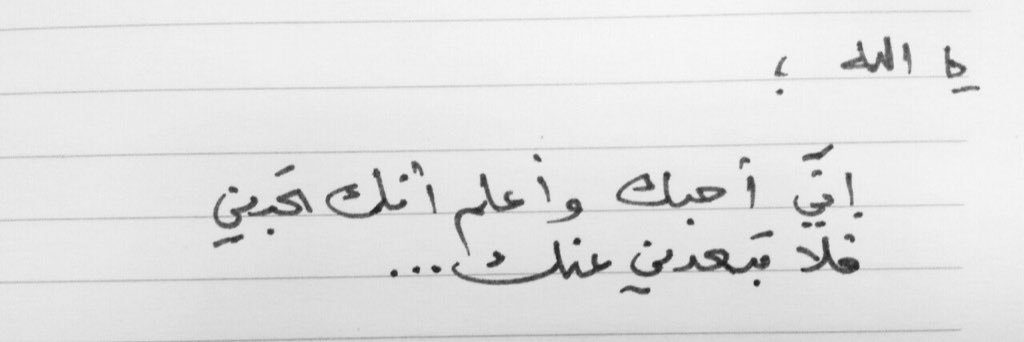 يا الله ؛
إنّي أحبك وأعلم أنك تحبني
فلا تبعدني عنك...